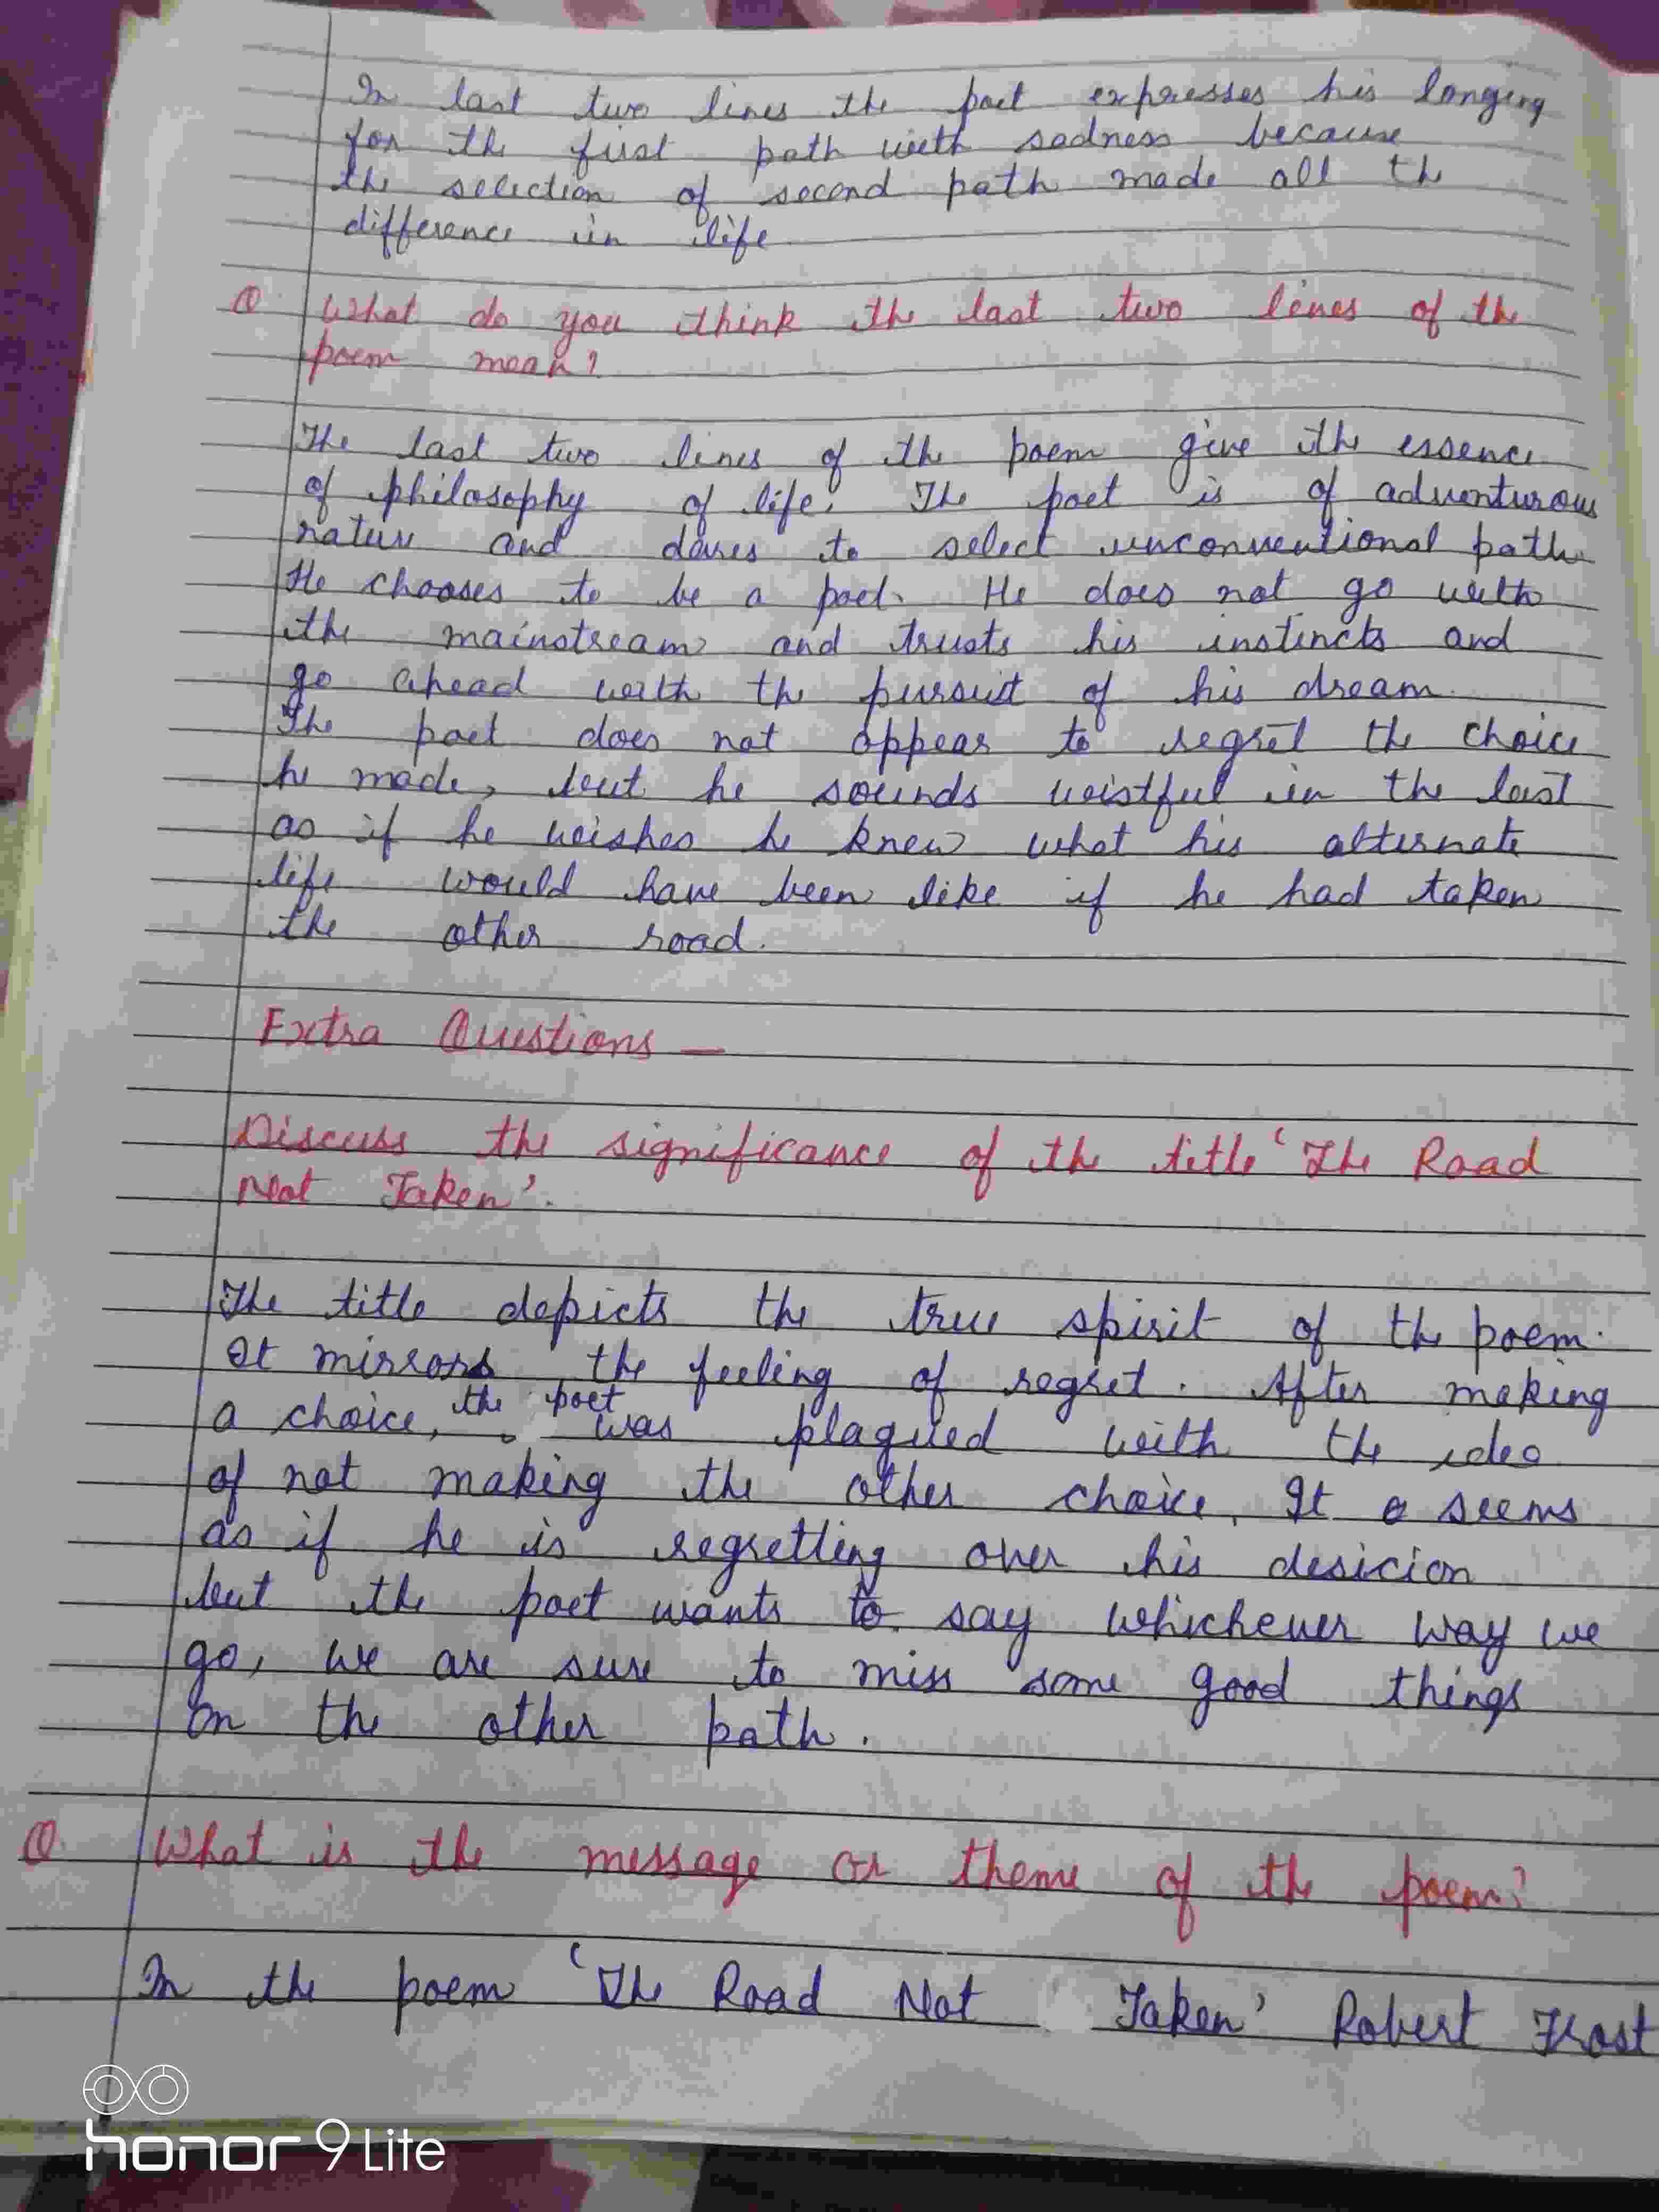 In last two lines the poet expresses his longing
for the first path with sadness because
the selection of second path made all the
difference in life
Q. What do you think the last two lines of the
poem mean?
The last two lines of the poem give the essence
of philosophy of life. The poet is of adventurous
nature and dares to select unconventional path
He chooses to be a poet. He does not go with
the mainstream and trusts his instincts and
go ahead with the pursuit of his dream.
The poet does not appear to regret the choice
he made, but he sounds wistful in the last
as if he wishes he knew what his alternate
life would have been like if he had taken
the other road.
Extra Questions —
Discuss the significance of the title 'The Road
Not Taken'.
The title depicts the true spirit of the poem.
It mirrors the feeling of regret. After making
a choice, the poet was plagued with the idea
of not making the other choice. It seems
as if he is regretting over his desicion
but the poet wants to say whichever way we
go, we are sure to miss some good things
on the other path.
Q What is the message or theme of the poem?
In the poem 'The Road Not Taken' Robert Frost
honor 9 Lite